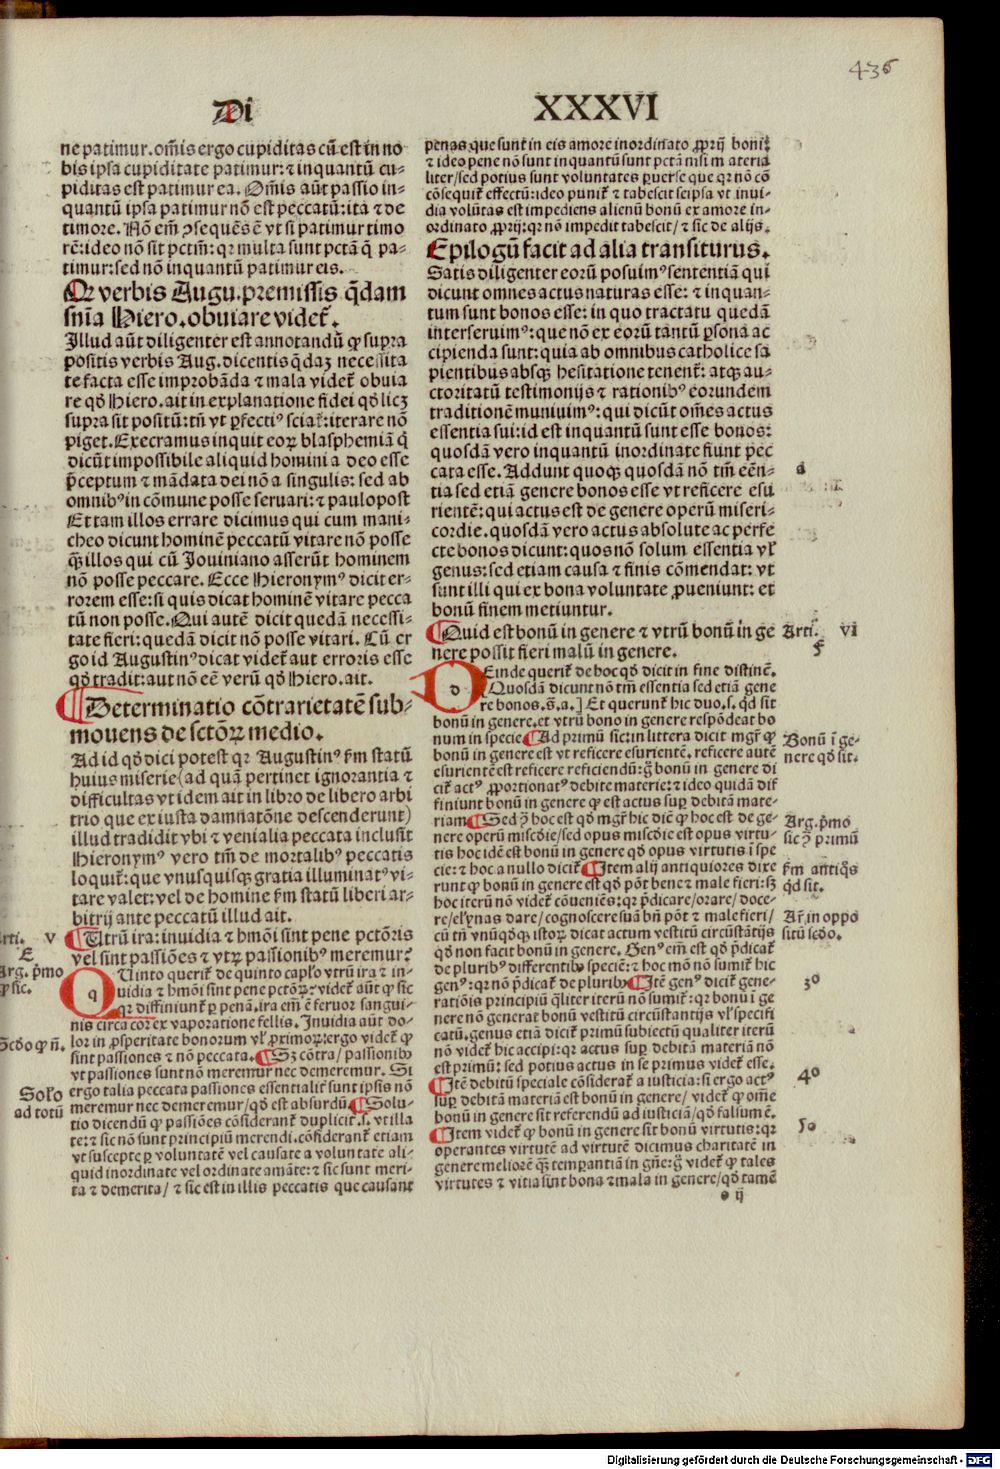 436
Di XXXVI
ne patimur. om̄is ergo cupiditas cū est in no
bis ipsa cupiditate patimur: ⁊ inquantū cu-
piditas est patimur ea. Om̄is aūt passio in-
quantū ipsa patimur nō est peccatū: ita ⁊ de
timore. Nō em̄ ꝯsequēs ē vt si patimur timo
rē: ideo nō sit pctm̄: qr multa sunt pctā q̄ pa-
timur: sed nō inquantū patimur eis.
Qr verbis Augu. premissis q̄dam
sn̄ia Hiero. obuiare videt̄.
Illud aūt diligenter est annotandū ꝙ supra
positis verbis Aug. dicentis q̄daꝫ necessita
te facta esse improbāda ⁊ mala videt̄ obuia
re qd̄ Hiero. ait in explanatione fidei qd̄ licꝫ
supra sit positū: tn̄ vt ꝑfectiꝰ sciat̄: iterare nō
piget. Execramus inquit eoꝝ blasphemiā q̄
dicūt impossibile aliquid homini a deo esse
p̄ceptum ⁊ mādata dei nō a singulis: sed ab
omnibꝰ in cōmune posse seruari: ⁊ paulopost
Et tam illos errare dicimus qui cum mani-
cheo dicunt hominē peccatū vitare nō posse
q̄ꝫ illos qui cū Iouiniano asserūt hominem
nō posse peccare. Ecce Hieronymꝰ dicit er-
rorem esse: si quis dicat hominē vitare pecca
tū non posse. Qui autē dicit quedā necessi-
tate fieri: quedā dicit nō posse vitari. Cū er
go id Augustinꝰ dicat videt̄ aut erroris esse
qd̄ tradit: aut nō eē verū qd̄ Hiero. ait.
¶ Determinatio cōtrarietatē sub-
mouens de sctōꝝ medio.
Ad id qd̄ dici potest qr Augustinꝰ ẜm statū
huius miserie (ad quā pertinet ignorantia ⁊
difficultas vt idem ait in libro de libero arbi
trio que ex iusta damnatōne descenderunt)
illud tradidit vbi ⁊ venialia peccata inclusit
Hieronymꝰ vero tm̄ de mortalibꝰ peccatis
loquit̄: que vnusquisqꝫ gratia illuminatꝰ vi-
tare valet: vel de homine ẜm statū liberi ar-
bitrij ante peccatū illud ait.
¶ Utrū ira: inuidia ⁊ hmōi sint pene pctōris
vel sint passiōes ⁊ vtꝝ passionibꝰ meremur?
Uinto querit̄ de quinto capl̓o vtrū ira ⁊ in-
uidia ⁊ hmōi sint pene pctōꝝ: ⁊ videt̄ aūt ꝙ sic
qr diffiniunt̄ ꝑ penā. ira em̄ ē feruor sangui-
nis circa cor ex vaporatione fellis. Inuidia aūt do-
lor in ꝓsperitate bonorum vl̓ ꝓximoꝝ: ergo videt̄ ꝙ
sint passiones ⁊ nō peccata. ¶ Sꝫ cōtra/ passionibꝰ
vt passiones sunt nō meremur nec demeremur. Si
ergo talia peccata passiones essentialit̄ sunt ipsis nō
meremur nec demeremur/ qd̄ est absurdū. ¶ Solu-
tio dicendū ꝙ passiōes cōsiderant̄ duplicit̄. s. vt illa
te: ⁊ sic nō sunt principiū merendi. cōsiderant̄ etiam
vt suscepte ꝑ voluntatē vel causate a voluntate ali-
quid inordinate vel ordinate amāte: ⁊ sic sunt meri-
ta ⁊ demerita/ ⁊ sic est in illis peccatis que causant
Arti. V
E
Arg. p̄mo
ꝙ sic.
Scd̄o ꝙ ñ.
Solo
ad totū
penas. que sunt̄ in eis amore inordinato ꝓprij boni:
⁊ ideo pene nō sunt inquantū sunt pctā nisi materia
liter/ sed potius sunt voluntates ꝑuerse que qr nō cō
cōsequit̄ effectū: ideo punit̄ ⁊ tabescit seipsa vt inui-
dia volūtas est impediens alienū bonū ex amore in-
ordinato ꝓprij: qr nō impedit tabescit/ ⁊ sic de alijs.
Epilogū facit ad alia transiturus.
Satis diligenter eorū posuimꝰ sententiā qui
dicunt omnes actus naturas esse: ⁊ inquan-
tum sunt bonos esse: in quo tractatu quedā
interseruimꝰ: que nō ex eorū tantū ꝑsona ac
cipienda sunt: quia ab omnibus catholice sa
pientibus absqꝫ hesitatione tenent̄: atqꝫ au-
ctoritatū testimonijs ⁊ rationibꝰ eorundem
traditionē muniuimꝰ: qui dicūt om̄es actus
essentia sui: id est inquantū sunt esse bonos:
quosdā vero inquantū inordinate fiunt pec
cata esse. Addunt quoqꝫ quosdā nō tm̄ eēn-
tia sed etiā genere bonos esse vt reficere esu
rientē: qui actus est de genere operū miseri-
cordie. quosdā vero actus absolute ac perfe
cte bonos dicunt: quos nō solum essentia vl̓
genus: sed etiam causa ⁊ finis cōmendat: vt
sunt illi qui ex bona voluntate ꝓueniunt: et
bonū finem metiuntur.
¶ Quid est bonū in genere ⁊ vtrū bonū in ge
nere possit fieri malū in genere.
Einde querit̄ de hoc qd̄ dicit in fine distinē.
Quosdā dicunt nō tm̄ essentia sed etiā gene
re bonos. ⁊c. a.] Et querunt̄ hic duo. s. qd̄ sit
bonū in genere. et vtrū bono in genere respōdeat bo
num in specie ¶ Ad primū sic: in littera dicit mgr̄ ꝙ
bonū in genere est vt reficere esurientē. reficere autē
esurientē est reficere reficiendū: g̊ bonū in genere di
cit̄ actꝰ ꝓportionatꝰ debite materie: ⁊ ideo quidā dif
finiunt bonū in genere ꝙ est actus suꝑ debitā mate-
riam ¶ Sed ꝯ̄ hoc est qd̄ mgr̄ hic dic̄ ꝙ hoc est de ge-
nere operū miscd̄ie/ sed opus miscd̄ie est opus virtu-
tis hoc idē est bonū in genere qd̄ opus virtutis ī spe
cie: ⁊ hoc a nullo dicit̄ ¶ Item alij antiquiores dixe
runt ꝙ bonū in genere est qd̄ pōt bene ⁊ male fieri: sꝫ
hoc iterū nō videt̄ cōueniēs: qr p̄dicare/ orare/ doce-
re/ el̓ynas dare/ cognoscere suā bn̄ pōt ⁊ male fieri/
cū tn̄ vnūqd̄qꝫ istoꝝ dicat actum vestitū circūstātijs
qd̄ non facit bonū in genere. Genꝰ em̄ est qd̄ p̄dicat̄
de pluribꝰ differentibꝰ specie: ⁊ hoc mō nō sumit̄ hic
genꝰ: qr nō p̄dicat̄ de pluribꝰ ¶ Itē genꝰ dicit̄ gene-
ratiōis principiū qualiter iterū nō sumit̄: qr bonū ī ge
nere nō generat bonū vestitū circūstantijs vl̓ specifi
catū. genus etiā dicit̄ primū subiectū qualiter iterū
nō videt̄ hic accipi: qr actus suꝑ debitā materiā nō
est primū: sed potius actus in se primus videt̄ esse.
¶ Itē debitū speciale cōsiderat̄ a iusticia: si ergo actꝰ
suꝑ debitā materiā est bonū in genere/ videt̄ ꝙ om̄e
bonū in genere sit referendū ad iusticiā/ qd̄ falsum ē.
¶ Item videt̄ ꝙ bonū in genere sit bonū virtutis: qr
operantes virtutē ad virtutē dicimus charitatē in
genere meliorē q̄ꝫ temꝑantiā in gn̄e: g̊ videt̄ ꝙ tales
virtutes ⁊ vitia sunt bona ⁊ mala in genere/ qd̄ tamē
e ij
Arti. VI
F
Bonū ī ge-
nere qd̄ sit.
Arg. p̄mo
sic ꝯ̄ primū
ẜm antiq̄s
qd̄ sit.
Ar̄. in oppo
sitū scd̄o.
3o
4o
5o
Digitalisierung gefördert durch die Deutsche Forschungsgemeinschaft - DFG